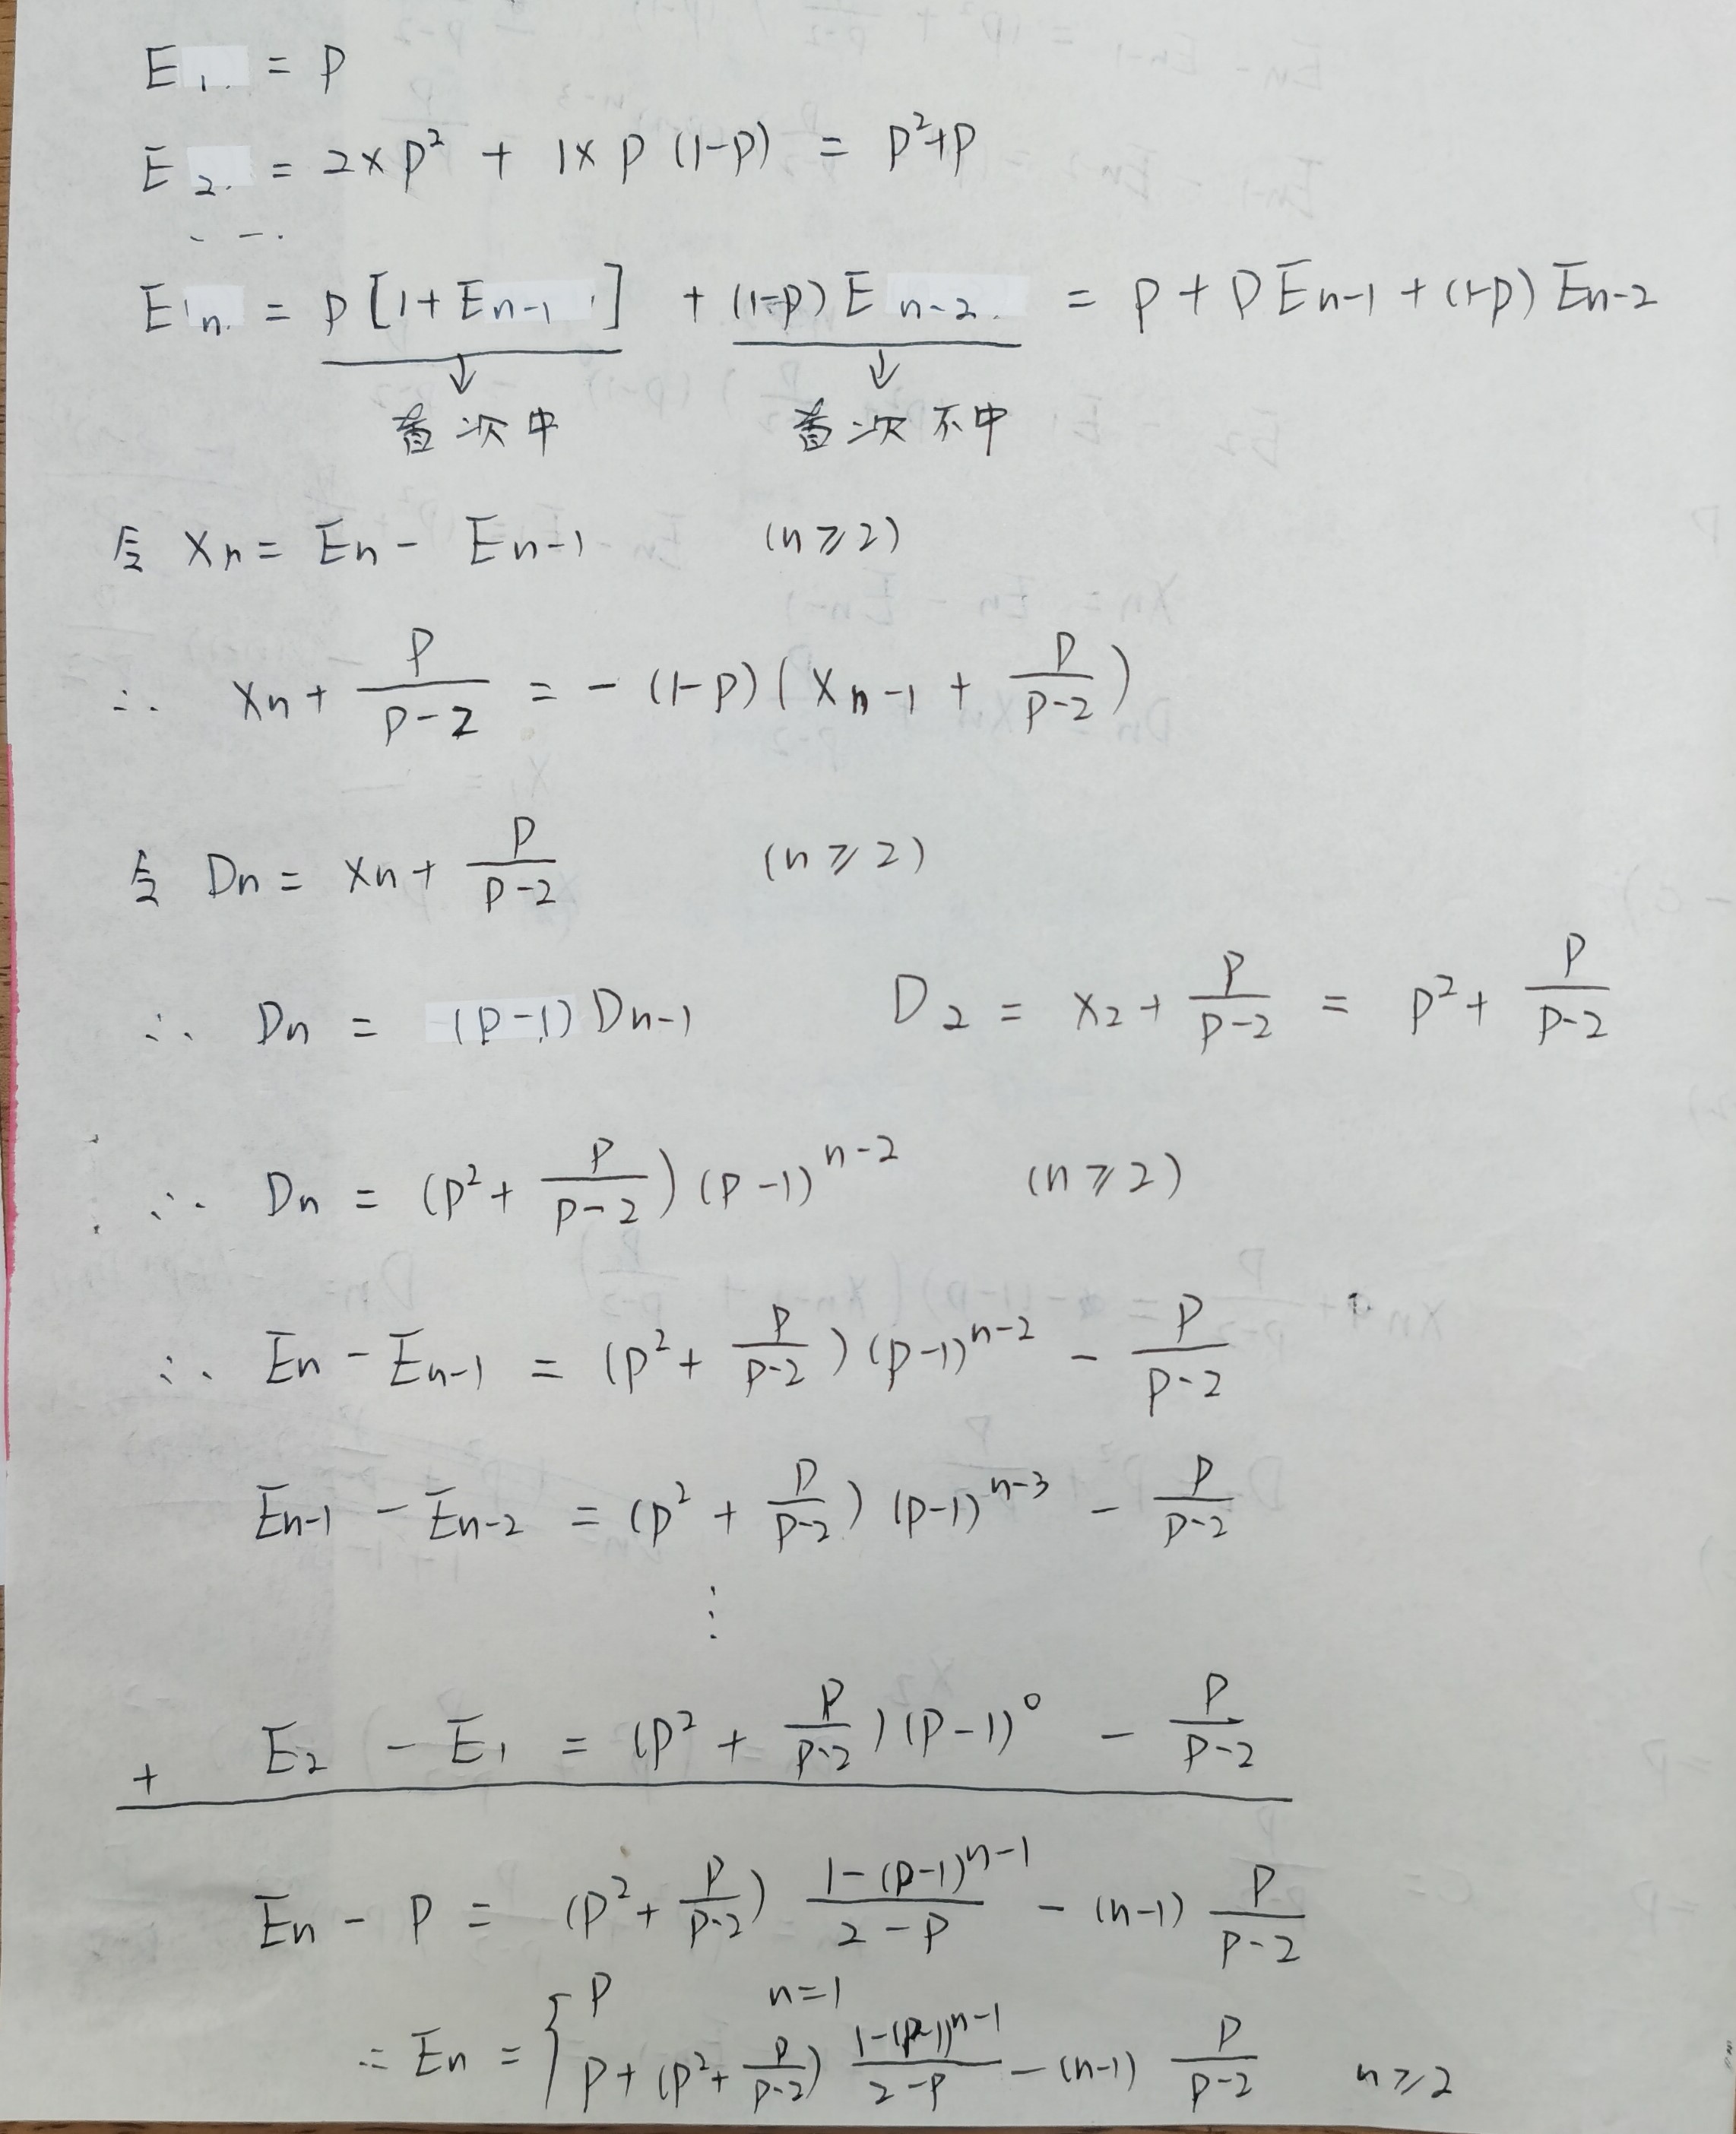 E₁. = P
E₂. = 2×P² + 1×P(1-P) = P²+P
...
Eₙ. = P[1+Eₙ₋₁] + (1-P)Eₙ₋₂. = P+PEₙ₋₁+(1-P)Eₙ₋₂
↓ ↓
首次中 首次不中
令 Xₙ = Eₙ - Eₙ₋₁ (n≥2)
∴ Xₙ + P/(P-2) = -(1-P)(Xₙ₋₁ + P/(P-2))
令 Dₙ = Xₙ + P/(P-2) (n≥2)
∴ Dₙ = (P-1)Dₙ₋₁ D₂ = X₂ + P/(P-2) = P² + P/(P-2)
∴ Dₙ = (P² + P/(P-2))(P-1)ⁿ⁻² (n≥2)
∴ Eₙ - Eₙ₋₁ = (P² + P/(P-2))(P-1)ⁿ⁻² - P/(P-2)
Eₙ₋₁ - Eₙ₋₂ = (P² + P/(P-2))(P-1)ⁿ⁻³ - P/(P-2)
⋮
+ E₂ - E₁ = (P² + P/(P-2))(P-1)⁰ - P/(P-2)
Eₙ - P = (P² + P/(P-2)) (1-(P-1)ⁿ⁻¹)/(2-P) - (n-1) P/(P-2)
∴ Eₙ = { P n=1
P + (P² + P/(P-2)) (1-(P-1)ⁿ⁻¹)/(2-P) - (n-1) P/(P-2) n≥2